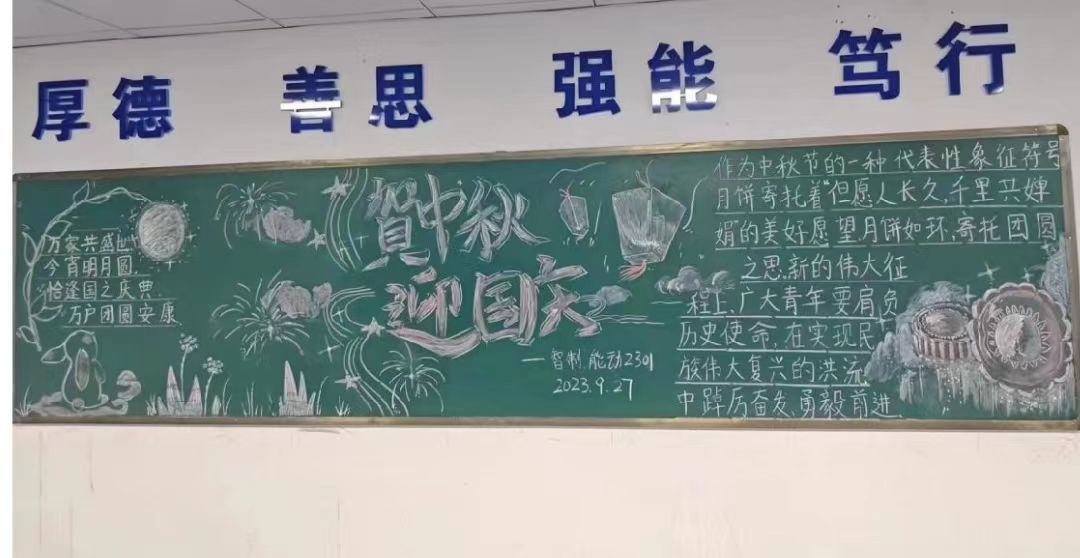 厚德 善思 强能 笃行
万家共盛世
今宵明月圆
恰逢国之庆典
万户团圆安康
賀中秋
迎国庆
—智制.能动2301
2023.9.27
作为中秋节的一种代表性象征符号
月饼寄托着“但愿人长久,千里共婵
娟的美好愿望月饼如环,寄托团圆
之思,新的伟大征
程上,广大青年要肩负
历史使命,在实现民
族伟大复兴的洪流
中踔厉奋发,勇毅前进